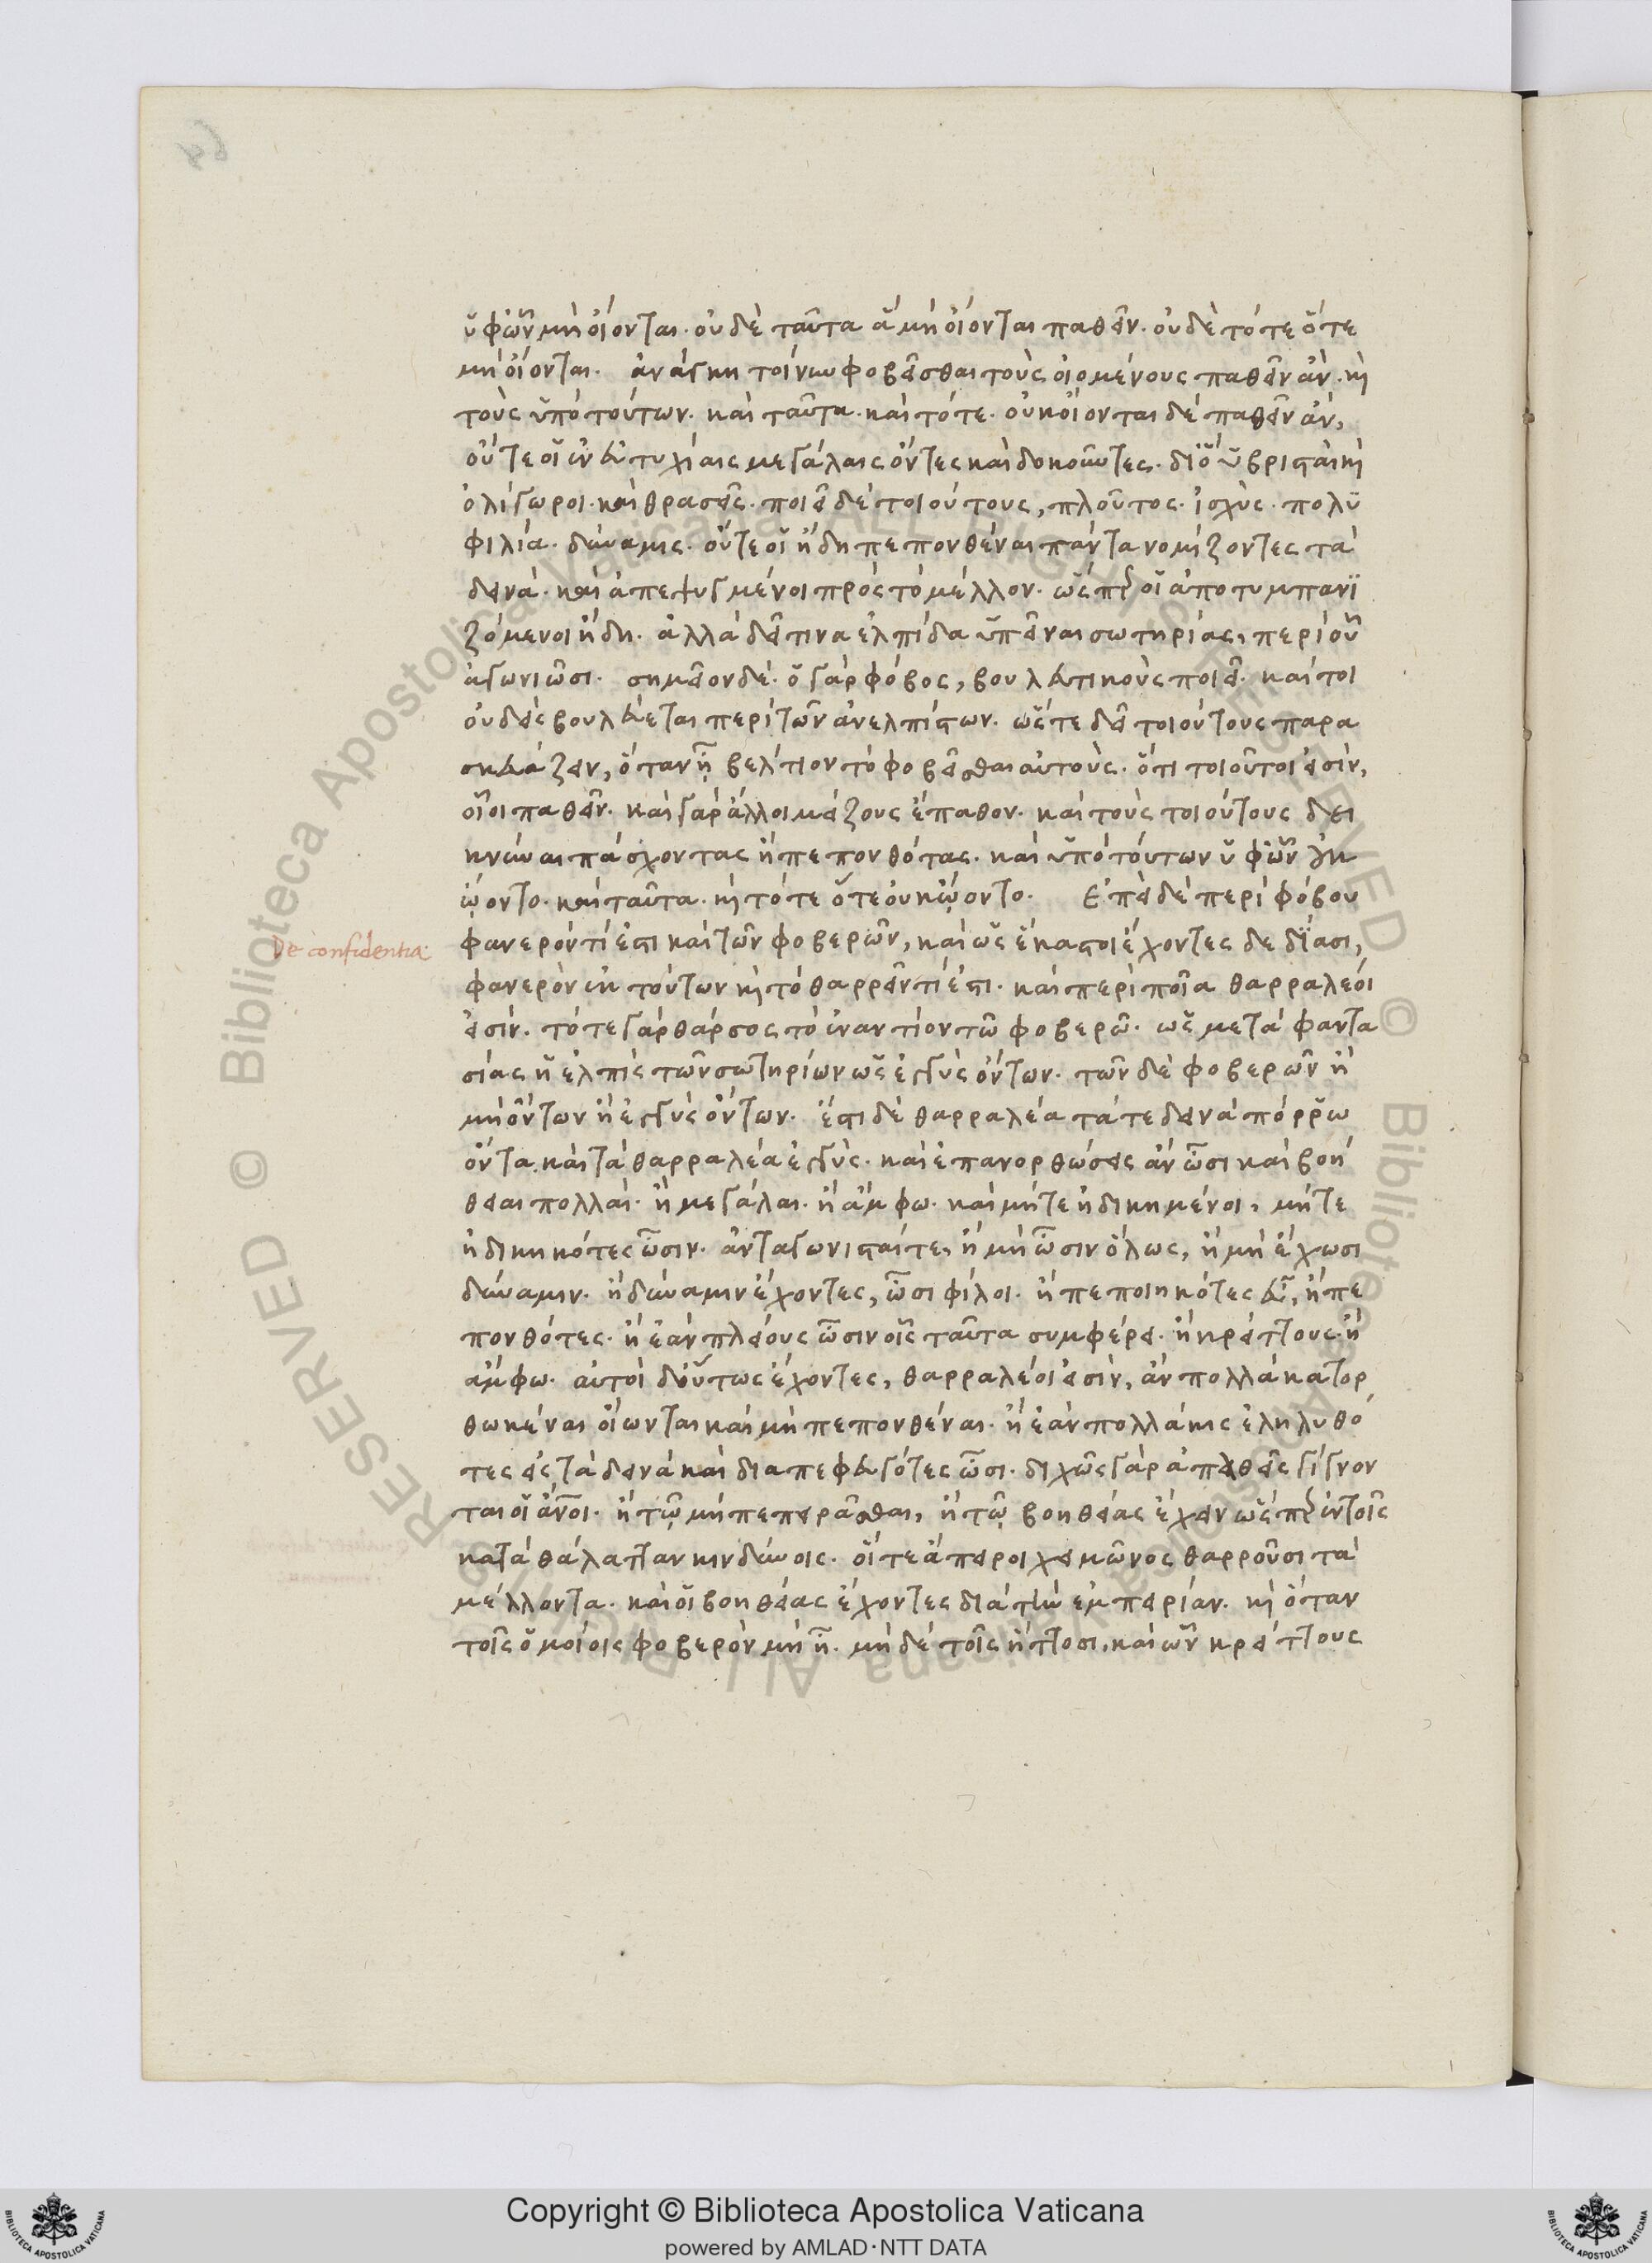 ὑφ' ὧν μὴ οἴονται. οὐδὲ ταῦτα ἃ μὴ οἴονται παθεῖν. οὐδὲ τότε ὅτε
μὴ οἴονται. ἀνάγκη τοίνυν φοβεῖσθαι τοὺς οἰομένους παθεῖν ἄν. κὶ
τοὺς ὑπὸ τούτων. καὶ ταῦτα. καὶ τότε. οὐκ οἴονται δὲ παθεῖν ἄν,
οὔτε οἱ ἐν εὐτυχίαις μεγάλαις ὄντες καὶ δοκοῦντες. διὸ ὑβρισταὶ κὶ
ὀλίγωροι. καὶ θρασεῖς. ποιεῖ δὲ τοιούτους, πλοῦτος. ἰσχὺς. πολυ
φιλία. δύναμις. οὔτε οἱ ἤδη πεπονθέναι πάντα νομίζοντες τὰ
δεινά. καὶ ἀπεψυγμένοι πρὸς τὸ μέλλον. ὥσπερ οἱ ἀποτυμπανϊ
ζόμενοι ἤδη. ἀλλὰ δεῖ τινα ἐλπίδα ὑπεῖναι σωτηρίας, περὶ οὗ
ἀγωνιῶσι. σημεῖον δέ. ὁ γὰρ φόβος, βουλευτικοὺς ποιεῖ. καί τοι
οὐδεὶς βουλεύεται περὶ τῶν ἀνελπίστων. ὥστε δεῖ τοιούτους παρα
σκευάζειν, ὅταν ᾖ βέλτιον τὸ φοβεῖσθαι αὐτοὺς. ὅτι τοιοῦτοι εἰσὶν,
οἷοι παθεῖν. καὶ γὰρ ἄλλοι μείζους ἔπαθον. καὶ τοὺς τοιούτους δει
κνύναι πάσχοντας ἢ πεπονθότας. καὶ ὑπὸ τούτων ὑφ' ὧν οὐκ
ᾤοντο. καὶ ταῦτα. κὶ τότε ὅτε οὐκ ᾤοντο. Ἐπεὶ δὲ περὶ φόβου
De confidentia.
φανερὸν τί ἐστι καὶ τῶν φοβερῶν, καὶ ὡς ἕκαστοι ἔχοντες δεδΐασι,
φανερὸν ἐκ τούτων κὶ τὸ θαρρεῖν τί ἐστι. καὶ περὶ ποῖα θαρραλέοι
εἰσίν. τό τε γὰρ θάρσος τὸ ἐναντίον τῶ φοβερῶ. ὡς μετὰ φαντα
σίας ἡ ἐλπὶς τῶν σωτηρίων ὡς ἐγγὺς ὄντων. τῶν δὲ φοβερῶν ἢ
μὴ ὄντων ἢ ἐγγὺς ὄντων. ἔστι δὲ θαρραλέα τά τε δεινὰ πόρρω
ὄντα. καὶ τὰ θαρραλέα ἐγγύς. καὶ ἐπανορθώσεις ἂν ὦσι καὶ βοή
θειαι πολλαὶ. ἢ μεγάλαι. ἢ ἄμφω. καὶ μήτε ἠδικημένοι, μήτε
ἠδικηκότες ὦσιν. ἀνταγωνισταί τε, ἢ μὴ ὦσιν ὅλως, ἢ μὴ ἔχωσι
δύναμιν. ἢ δύναμιν ἔχοντες, ὦσι φίλοι. ἢ πεποιηκότες εὖ, ἢ πε
πονθότες. ἢ ἐὰν πλείους ὦσιν οἷς ταῦτα συμφέρει. ἢ κρείττους. ἢ
ἄμφω. αὐτοὶ δ' οὕτως ἔχοντες, θαρραλέοι εἰσὶν, ἂν πολλὰ κατορ
θωκέναι οἴωνται καὶ μὴ πεπονθέναι. ἢ ἐὰν πολλάκις ἐληλυθό
τες εἰς τὰ δεινὰ καὶ διαπεφευγότες ὦσι. διχῶς γὰρ ἀπαθεῖς γίγνον
ται οἱ ἄνοι. ἢ τῷ μὴ πεπειρᾶσθαι, ἢ τῷ βοηθείας ἔχειν ὥσπερ ἐν τοῖς
κατὰ θάλατταν κινδύνοις. οἵ τε ἄπειροι χειμῶνος θαρροῦσι τὰ
μέλλοντα. καὶ οἱ βοηθείας ἔχοντες διὰ τὴν ἐμπειρίαν. κὶ ὅταν
τοῖς ὁμοίοις φοβερὸν μὴ ᾖ. μὴ δὲ τοῖς ἥττοσι. καὶ ὧν κρείττους
Copyright © Biblioteca Apostolica Vaticana
powered by AMLAD·NTT DATA